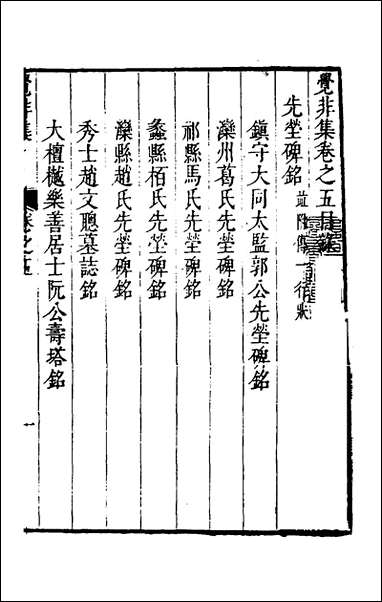 覺非集卷之五目錄
先塋碑銘 並附傳一行狀
鎮守大同太監郭公先塋碑銘
灤州葛氏先塋碑銘
祁縣馬氏先塋碑銘
蠡縣栢氏先塋碑銘
灤縣趙氏先塋碑銘
秀士趙文聰墓誌銘
大檀樾樂善居士阮公壽塔銘
覺非集 卷之五 一